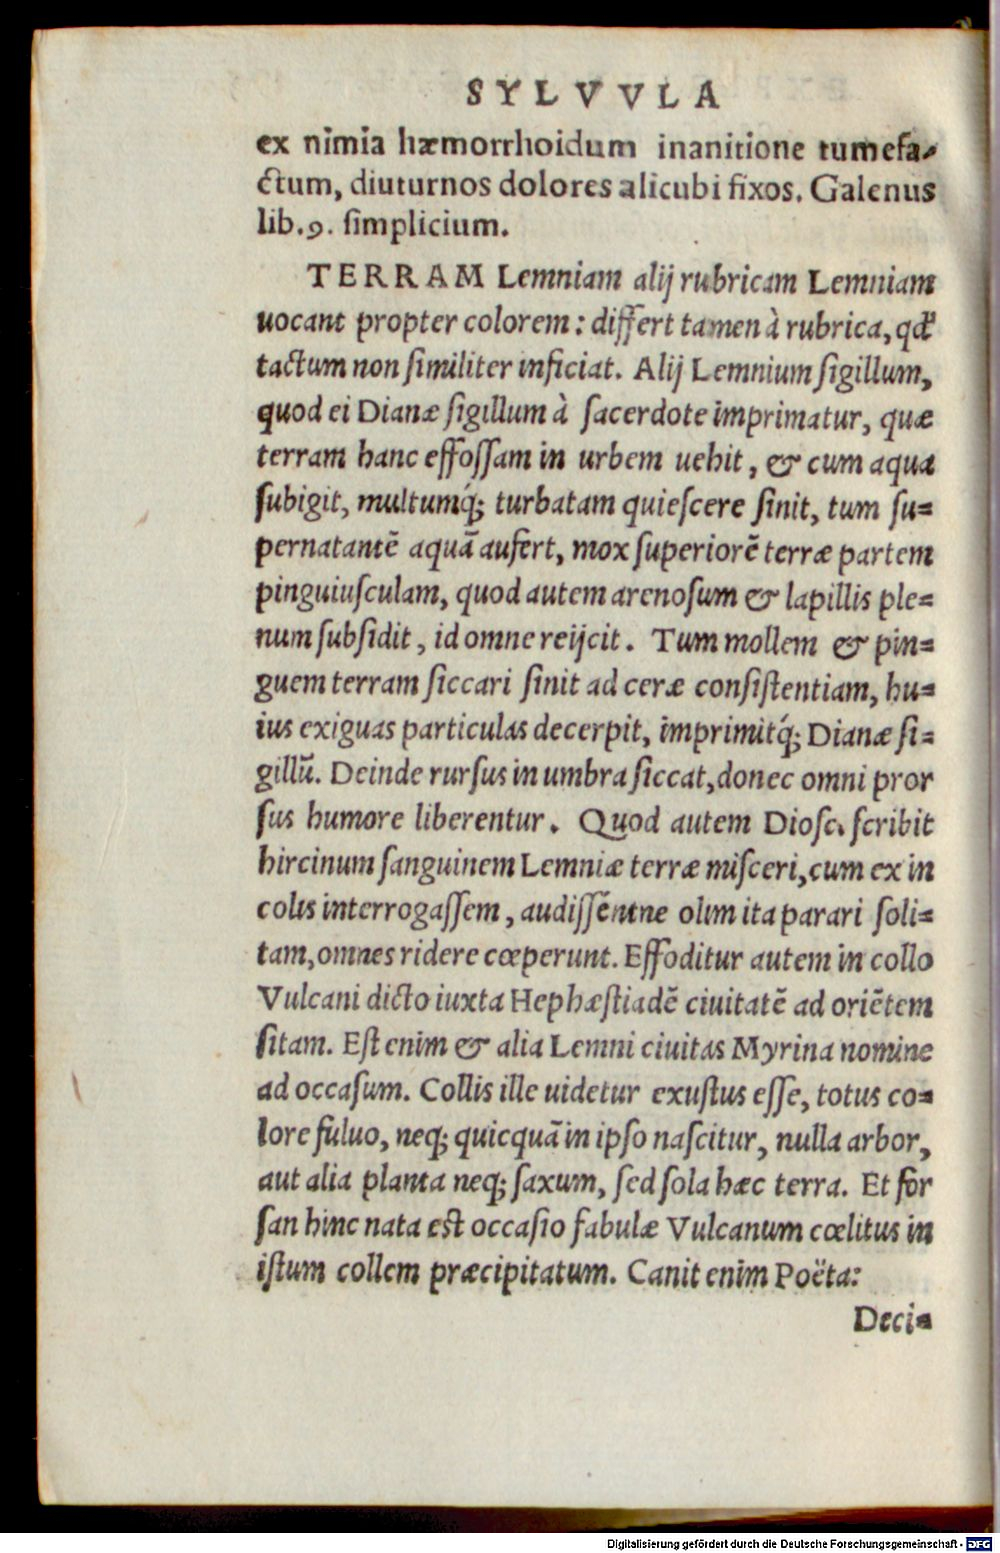 SYLVVLA
ex nimia hæmorrhoidum inanitione tumefa-
ctum, diuturnos dolores alicubi fixos. Galenus
lib.9. simplicium.
TERRAM Lemniam alij rubricam Lemniam
uocant propter colorem: differt tamen à rubrica, qđ
tactum non similiter inficiat. Alij Lemnium sigillum,
quod ei Dianæ sigillum à sacerdote imprimatur, quæ
terram hanc effossam in urbem uehit, & cum aqua
subigit, multumq́; turbatam quiescere sinit, tum su=
pernatantẽ aquã aufert, mox superiorẽ terræ partem
pinguiusculam, quod autem arenosum & lapillis ple=
num subsidit, id omne reijcit. Tum mollem & pin=
guem terram siccari sinit ad ceræ consistentiam, hu=
ius exiguas particulas decerpit, imprimitq́; Dianæ si=
gillũ. Deinde rursus in umbra siccat, donec omni pror
sus humore liberentur. Quod autem Diosc. scribit
hircinum sanguinem Lemniæ terræ misceri, cum ex in
colis interrogassem, audissẽntne olim ita parari soli=
tam, omnes ridere cœperunt. Effoditur autem in collo
Vulcani dicto iuxta Hephæstiadẽ ciuitatẽ ad oriẽtem
sitam. Est enim & alia Lemni ciuitas Myrina nomine
ad occasum. Collis ille uidetur exustus esse, totus co=
lore fuluo, neq; quicquã in ipso nascitur, nulla arbor,
aut alia planta neq; saxum, sed sola hæc terra. Et for
san hinc nata est occasio fabulæ Vulcanum cœlitus in
istum collem præcipitatum. Canit enim Poëta:
Deci=
Digitalisierung gefördert durch die Deutsche Forschungsgemeinschaft - DFG